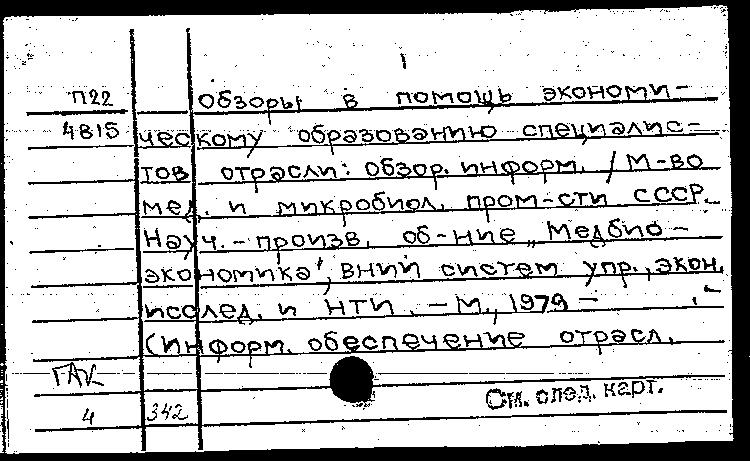 1
П22 Обзоры в помощь экономи-
4815 ческому образованию специалис-
тов отрасли: Обзор. информ. / М-во
мед. и микробиол. пром-сти СССР.
Науч.-произв. об-ние „Медбио-
экономика", ВНИИ систем упр., экон.
исслед. и НТИ. - М., 1979 -
(Информ. обеспечение отрасл.
ГАК
4 342 См. след. карт.